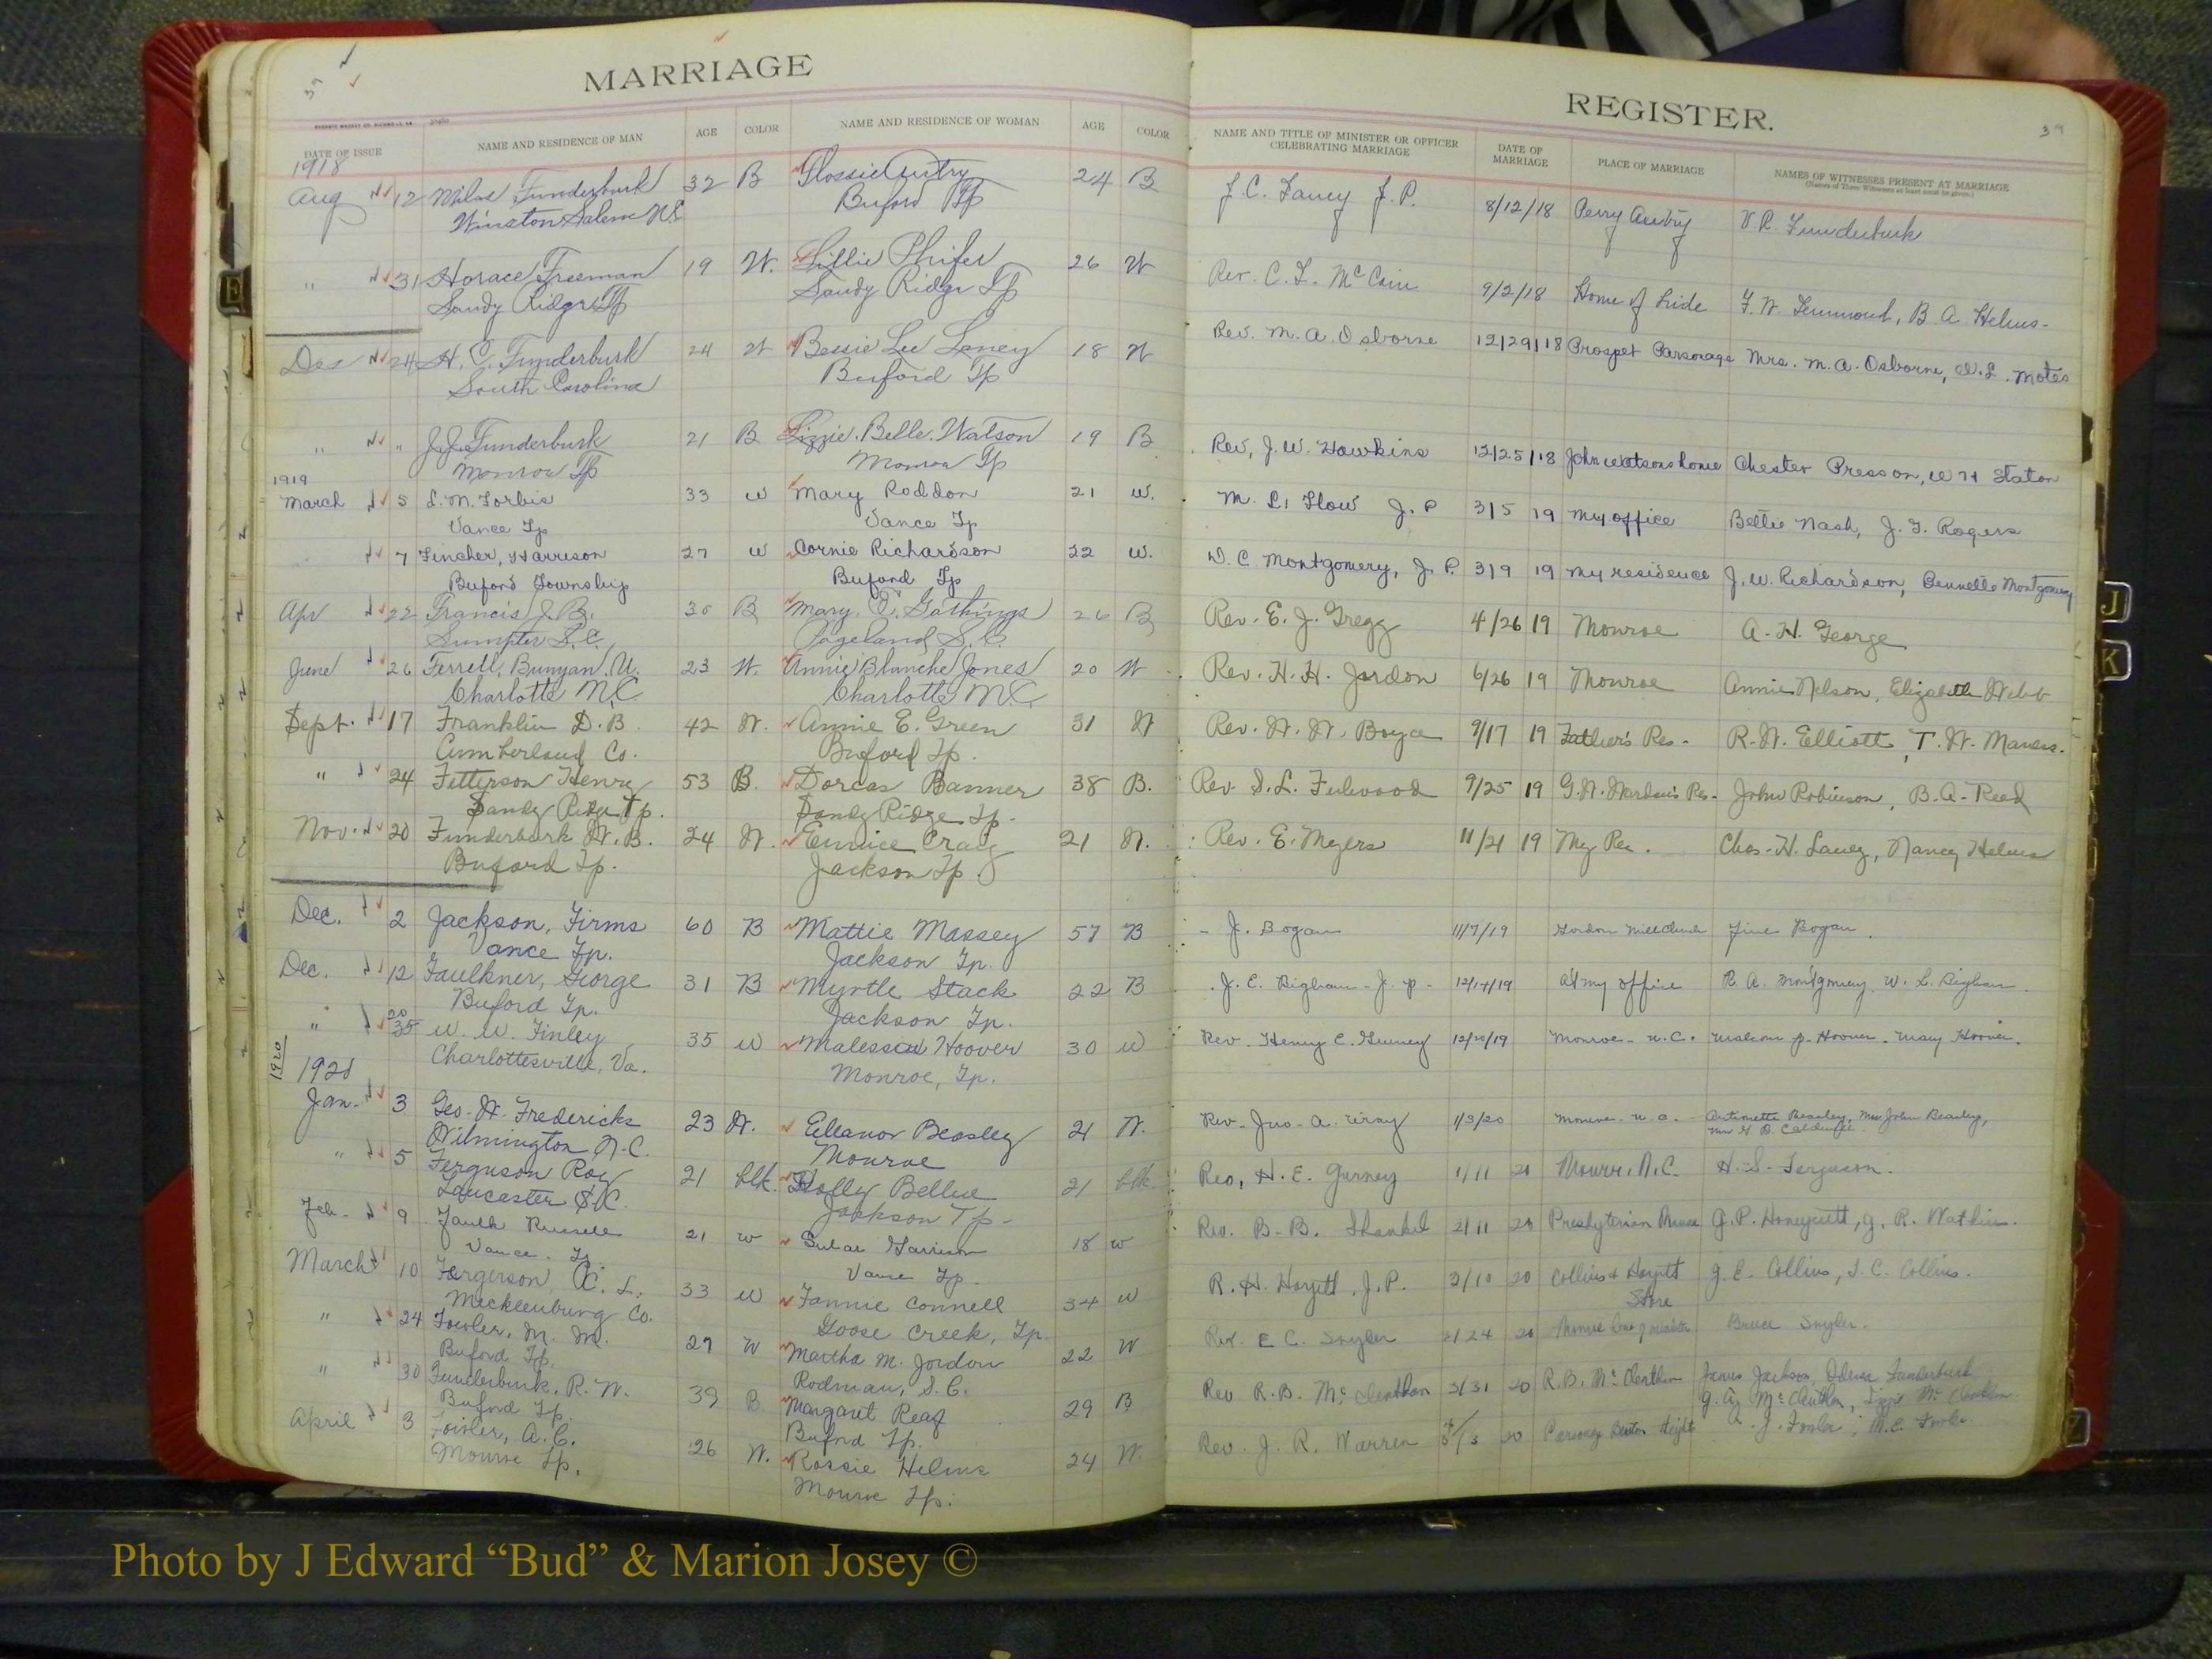 MARRIAGE
REGISTER.
39
DATE OF ISSUE NAME AND RESIDENCE OF MAN AGE COLOR NAME AND RESIDENCE OF WOMAN AGE COLOR NAME AND TITLE OF MINISTER OR OFFICER CELEBRATING MARRIAGE DATE OF MARRIAGE PLACE OF MARRIAGE NAMES OF WITNESSES PRESENT AT MARRIAGE
1918
Aug 12 Miles Funderburk 32 B Flossie Autry 24 B J. C. Laney J. P. 8/12/18 Perry Autry V. R. Funderburk
Winston Salem N.C. Buford Tp
" 31 Horace Freeman 19 W. Lillie Phifer 26 W Rev. C. L. McCain 9/2/18 Home of bride F. W. B. A. Helms
Sandy Ridge Tp Sandy Ridge Tp
Dec 24 H. C. Funderburk 24 W Bessie Lee Laney 18 W Rev. M. A. Osborne 12/29/18 Prospet Parsonage Mrs. M. A. Osborne, Motes
South Carolina Buford Tp
" " J. J. Funderburk 21 B Lizzie Belle Watson 19 B Rev, J. W. Hawkins 12/25/18 John Watsons home Chester Presson, W H Staton
Monroe Tp Monroe Tp
1919
March 5 L. M. Forbis 33 W Mary Roddon 21 W. M. L. Flow J. P 3/5 19 my office Bettie Nash, J. F. Rogers
Vance Tp Vance Tp
7 Fincher, Harrison 27 W Cornie Richardson 22 W. W. C. Montgomery, J. P. 3/9 19 my residence J. W. Richardson, Bennette Montgomery
Buford Township Buford Tp
Apr 22 Francis J. B. 30 B Mary, E. Gathings 26 B Rev. E. J. Gregg 4/26 19 Monroe A. H. George
Sumpter S.C. Pageland S.C.
June 26 Ferrell, Bunyan, U. 23 W. Annie Blanche Jones 20 W Rev. H. H. Jordon 6/26 19 Monroe Annie Nelson, Elizabeth Webb
Charlotte N.C Charlotte N.C.
Sept. 17 Franklin D. B 42 W. Annie E. Green 31 W Rev. W. W. Boyce 9/17 19 Father's Res- R. W. Elliott, T. W. Maness.
Cumberland Co. Buford Tp.
" 24 Fetterson Henry 53 B. Dorcas Banner 38 B. Rev. S. L. Fulwood 9/25 19 Res- John Robinson, B. A. Reed
Sandy Ridge Tp. Sandy Ridge Tp-
Nov. 20 Funderburk W. B. 24 W. Eunice Craig 21 W. Rev. E. Myers 11/21 19 My Res. Chas. H. Laney, Nancy Helms
Buford Tp. Jackson Tp.
Dec. 2 Jackson, Firms 60 B Mattie Massey 57 B J. Bogan 11/7/19 Bogan
Vance Tp. Jackson Tp.
Dec. 12 Faulkner, George 31 B Myrtle Stack 22 B J. E. Bigham- J. P- 12/14/19 at my office R. A. Montgomery. W. L. Bigham.
Buford Tp. Jackson Tp.
" 20 W. W. Finley 35 W Malessa Hoover 30 W Rev- Henry C. 12/20/19 Monroe- N.C. P. Hoover. Mary Hoover.
Charlottesville, Va. Monroe, Tp.
1920
1920
Jan. 3 Geo. W. Fredericks 23 W. Eleanor Beasley 21 W. Rev- Jno- A. Wray 1/3/20 Monroe- N. C. Antionette Beasley, Mrs John Beasley,
Wilmington N.C. Monroe
" 5 Ferguson Roy 21 blk. Bellue 21 blk. Rev, H. E. Gurney 1/11 20 Monroe, N.C. H. S. Ferguson.
Lancaster S.C. Jackson Tp-
Feb. 9 Faulk Russell 21 W Garrison 18 W Rev. B. B. Shankel 2/11 20 Presbyterian G. P. Honeycutt, G. R. Watkins.
Vance. Tp. Vance Tp.
March 10 Fergerson, C. L. 33 W Fannie Connell 34 W R. H. Hargett, J. P. 3/10 20 Collins & Hargett G. E. Collins, I. C. Collins.
Mecklenburg Co. Goose Creek, Tp. Store
" 24 Fowler, M. M. 27 W Martha M. Jordon 22 W Rev. E C. Snyder 3/24 20 Monroe Bruce Snyder.
Buford Tp. Rodman, S.C.
" 30 Funderburk, R. W. 39 B Margaret Reaf 29 B Rev R. B. McClenthan 3/31 20 R. B. McClenthan James Jackson, Funderburk
Buford Tp. Buford Tp.
April 3 Fowler, A. C. 26 W. Rossie Helms 24 W. Rev. J. R. Warren 20 Height J. Fowler, M. E. Fowler
Monroe Tp. Monroe Tp.
J
K
Z
E
Photo by J Edward “Bud” & Marion Josey ©